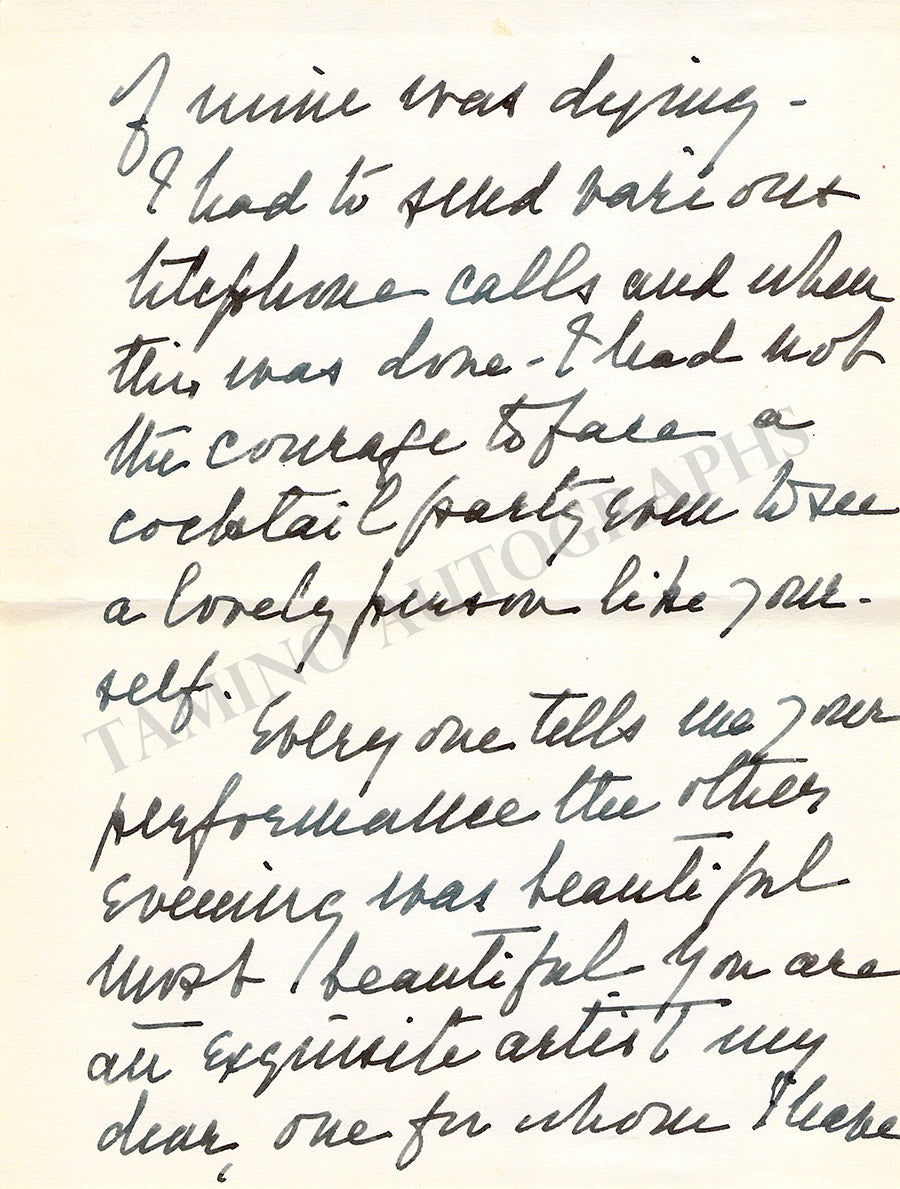 of mine was dying -
I had to send various
telephone calls and when
this was done - I had not
the courage to face a
cocktail party even to see
a lovely person like your-
self.
Everyone tells me your
performance the other
evening was beautiful
most beautiful You are
an exquisite artist my
dear, one for whom I have
TAMINO AUTOGRAPHS